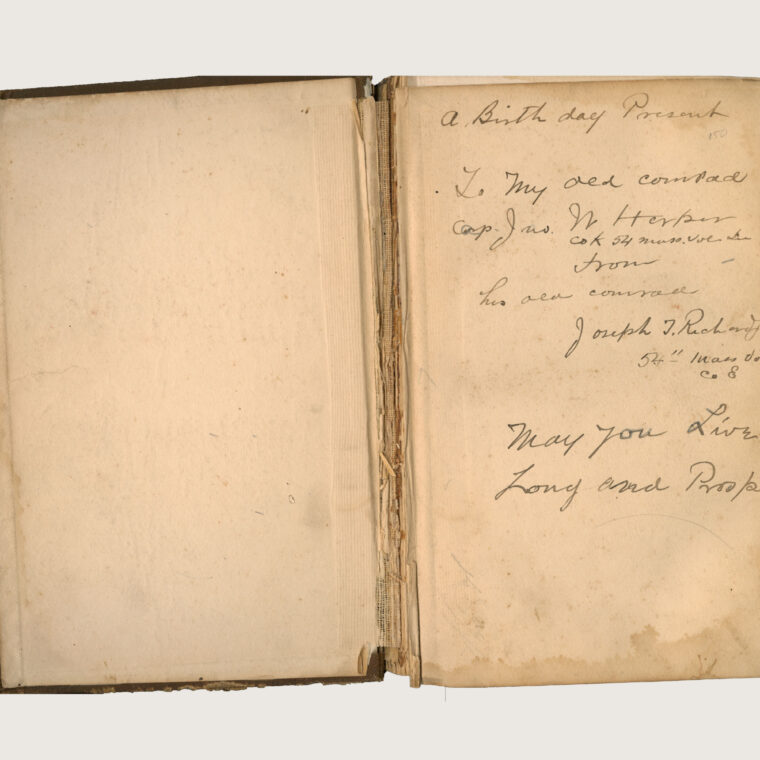 A Birth day Present
150
To My old comrad
Cap. Jno. W Herper
Co K 54 mass. vol.
From
his old comrad
Joseph T. Richard
54" Mass Vo
Co E
May you Live
Long and Prosp